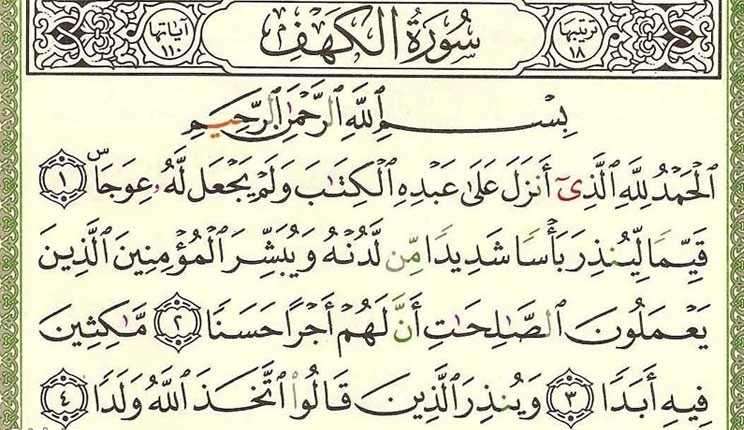 ترتيبها ١٨ سُورَةُ الكَهْفِ آياتها ١١٠
بِسْمِ ٱللَّهِ ٱلرَّحْمَٰنِ ٱلرَّحِيمِ
ٱلْحَمْدُ لِلَّهِ ٱلَّذِىٓ أَنزَلَ عَلَىٰ عَبْدِهِ ٱلْكِتَٰبَ وَلَمْ يَجْعَل لَّهُۥ عِوَجَاۜ ١
قَيِّمًا لِّيُنذِرَ بَأْسًا شَدِيدًا مِّن لَّدُنْهُ وَيُبَشِّرَ ٱلْمُؤْمِنِينَ ٱلَّذِينَ
يَعْمَلُونَ ٱلصَّٰلِحَٰتِ أَنَّ لَهُمْ أَجْرًا حَسَنًا ٢ مَّٰكِثِينَ
فِيهِ أَبَدًا ٣ وَيُنذِرَ ٱلَّذِينَ قَالُوا۟ ٱتَّخَذَ ٱللَّهُ وَلَدًا ٤